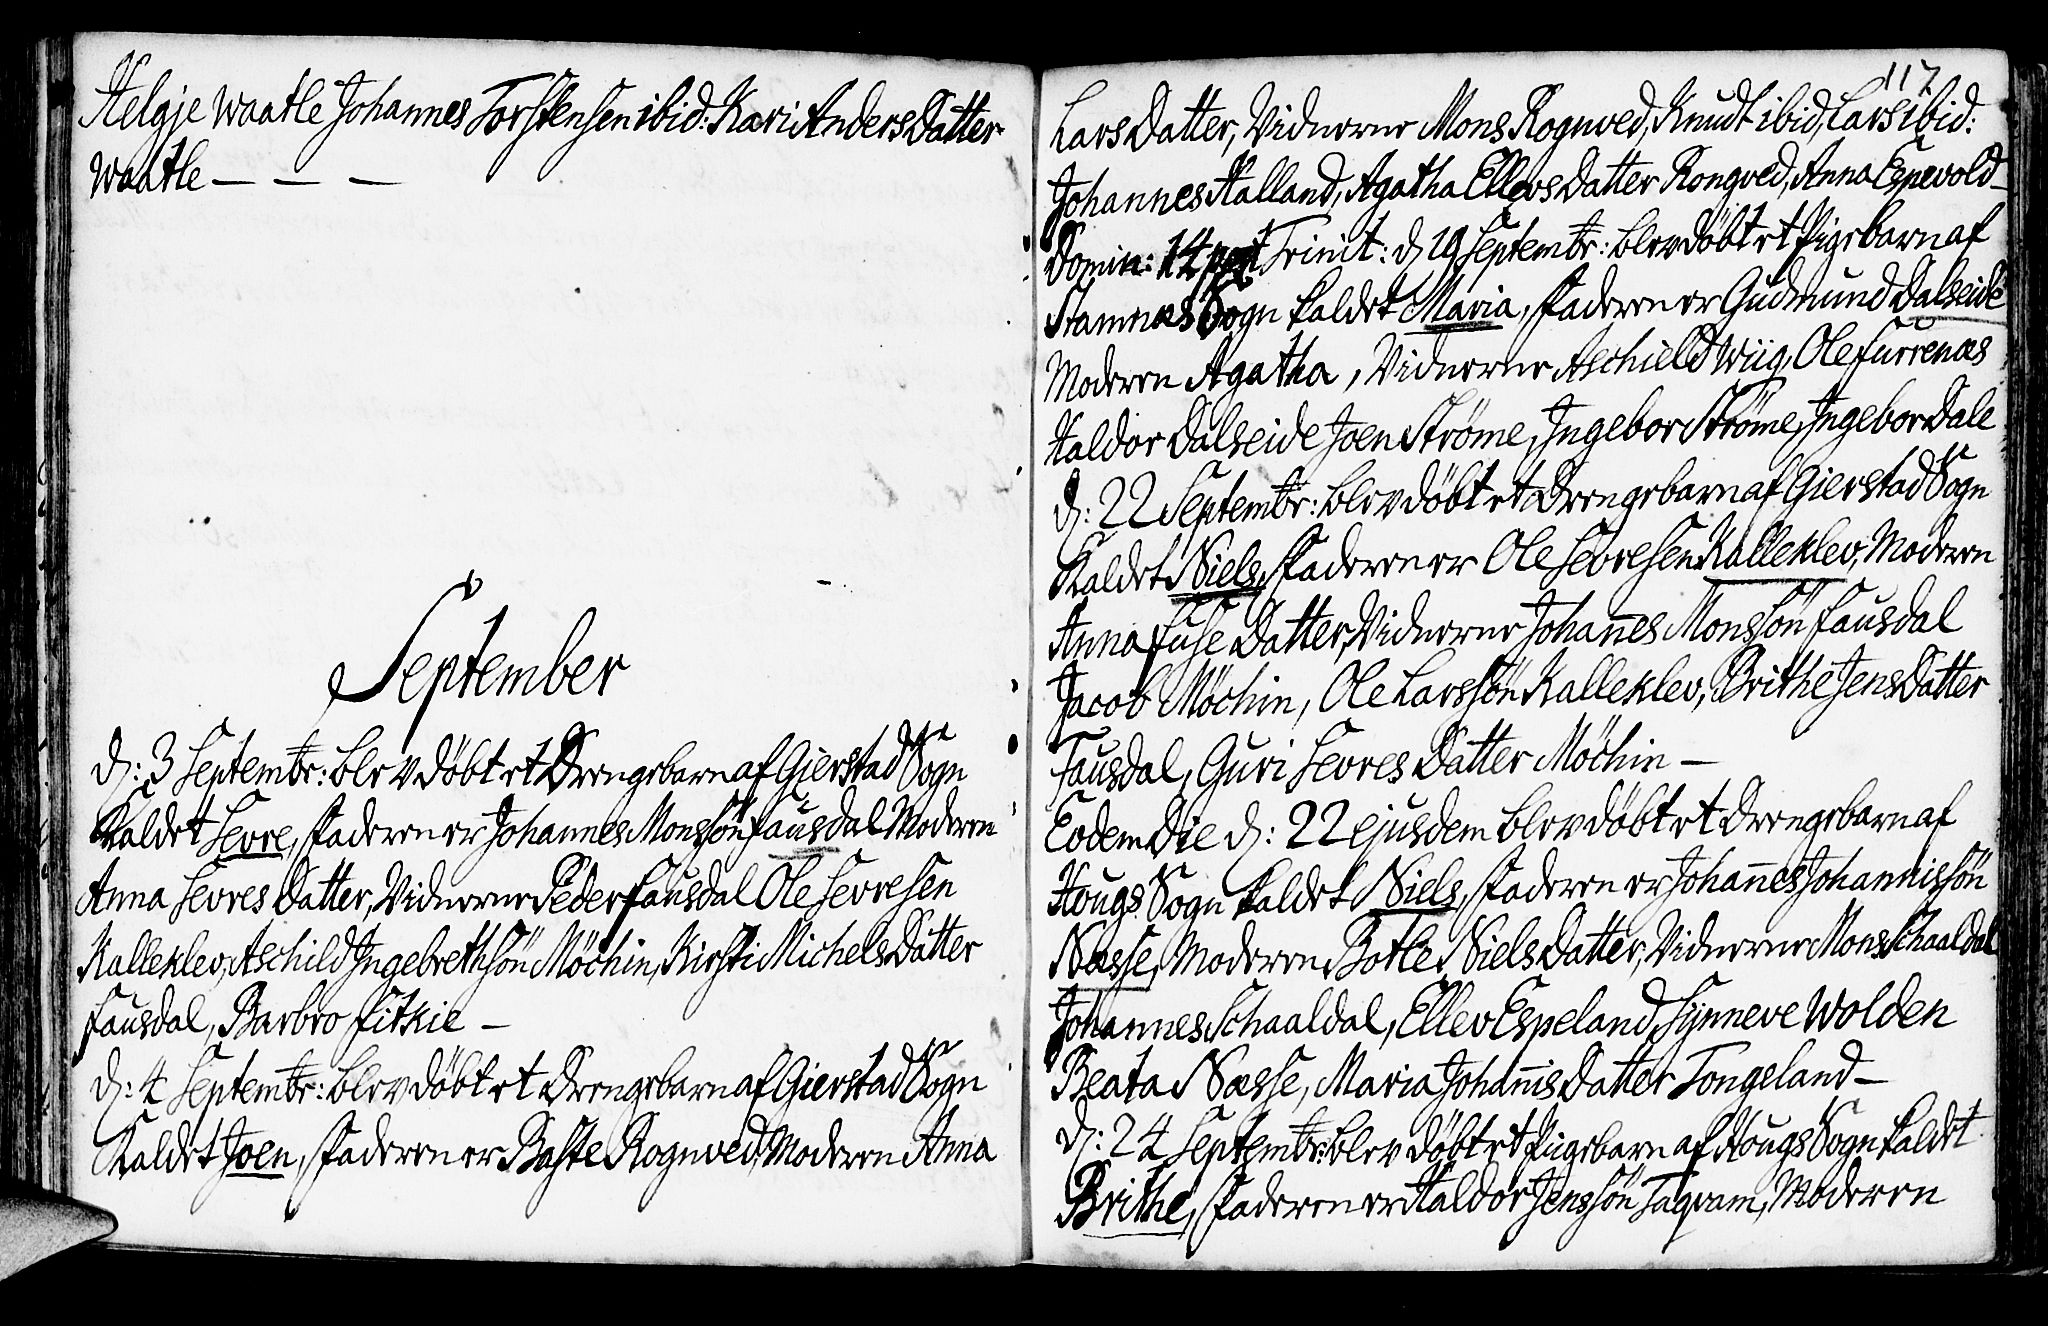 Helgje Waatle Johannes Torstensen ibid: Kari Anders Datter
Waatle — — —
September
d: 3 Septembr: blev döbt et Drengebarn af Gierstad Sogn
Kaldet Sevre, Faderen er Johannes Monssön Fausdal Moderen
Anna Sevres Datter, Vidnerne Peder Fausdal Ole Sevresen
Kalleklev, Aschild Ingebrethsön Möchin, Kirsti Michels Datter
Fausdal, Barbro Fitkie —
d: 4 Septembr: blev döbt et Drengebarn af Gierstad Sogn
Kaldet Joen, Faderen er Baste Rognved, Moderen Anna
117
Lars Datter, Vidnerne Mons Rognved, Knudt ibid, Lars ibid:
Johannes Halland, Agatha Ellevs Datter Rongved, Anna Espevold —
Domin: 14 post Trinit: d 19 Septembr: blev döbt et Pigebarn af
Stamnæs Sogn kaldet Maria, Faderen er Gudmund Dalseide
Moderen Agatha, Vidnerne Aschield Wiig, Ole Furrenæs
Haldor Dalseide Joen Strøme, Ingebor Strøme, Ingebor Dale
d: 22 Septembr: blev döbt et Drengebarn af Gierstad Sogn
Kaldet Niels, Faderen er Ole Sevresen Kalleklev, Moderen
Anna Fuse Datter, Vidnerne Johan̄es Monssön Fausdal
Jacob Möchin, Ole Larssön Kalleklev, Brithe Jens Datter
Fausdal, Guri Sevres Datter Möchin —
Eodem Die d: 22 ejusdem blev döbt et Drengebarn af
Hougs Sogn kaldet Niels, Faderen er Johan̄es Johannissön
Næsse, Moderen Botle Niels Datter, Vidnerne Mons Schaaldal
Johannes Schaaldal, Ellev Espeland, Synneve Wolden
Beata Næsse, Maria Johan̄is Datter Tongeland —
d: 24 Septembr: blev döbt et Pigebarn af Hougs Sogn kaldet
Brithe, Faderen er Haldor Jenssön Taqvam, Moderen